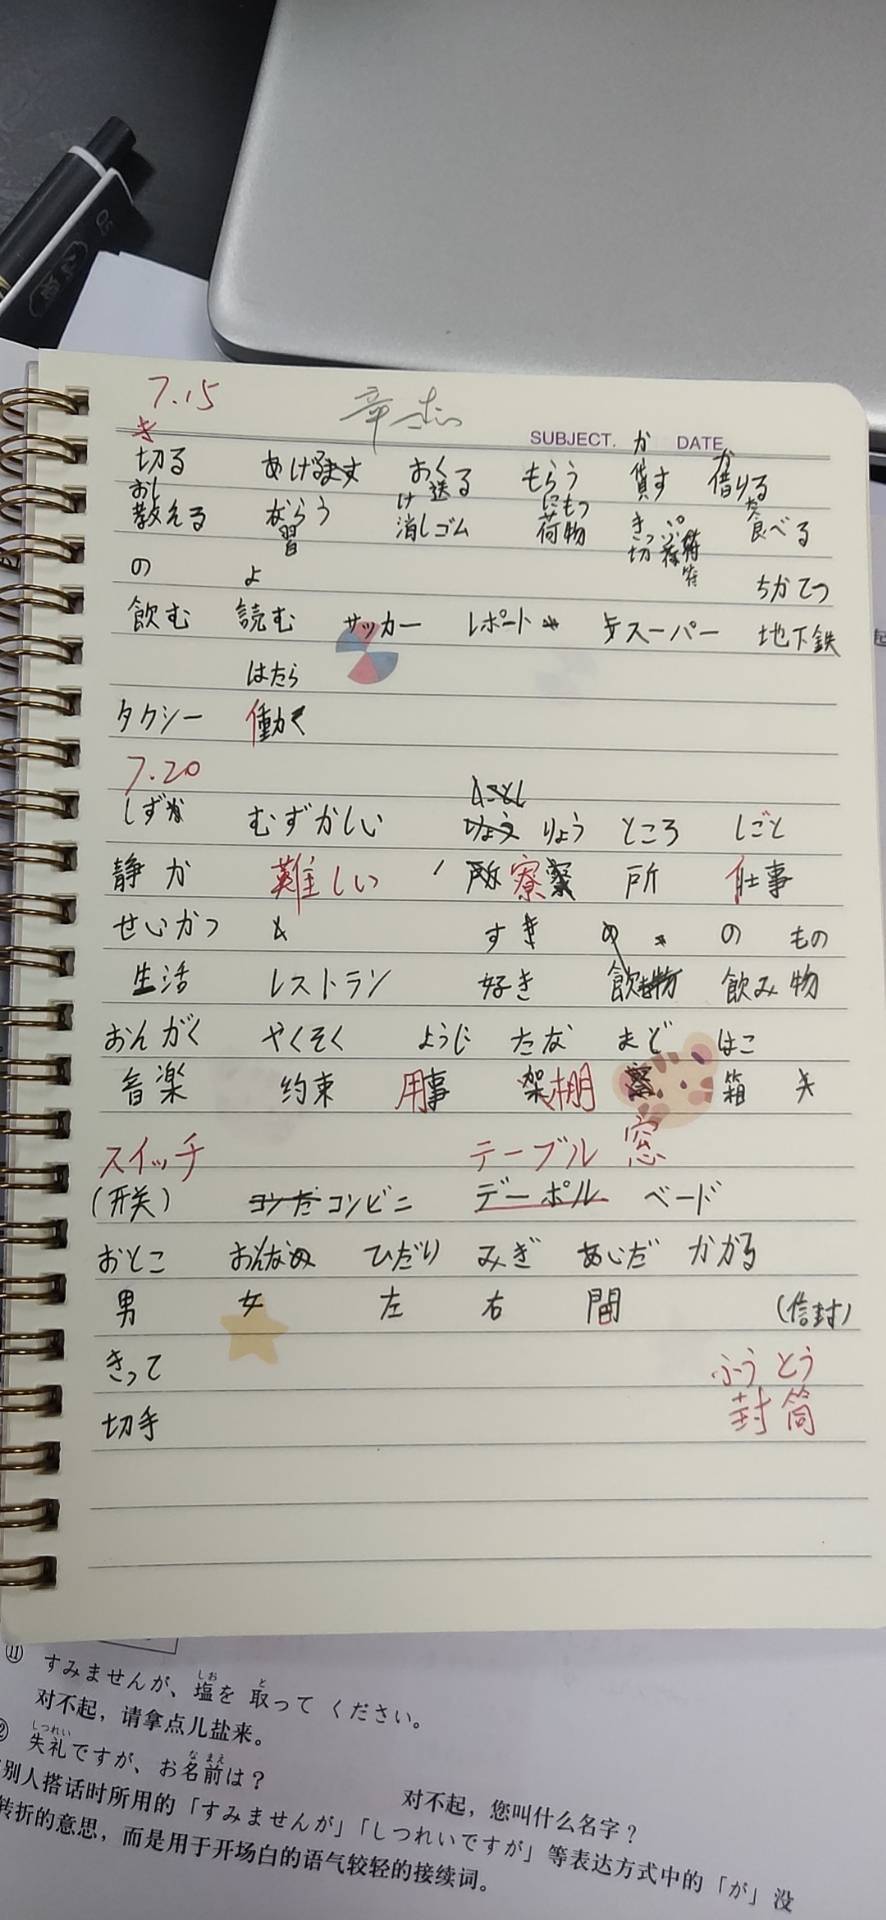 7.15
SUBJECT. か DATE.
き か
切る あげるます おく送る もらう 貸す 借りる
おし け にもつ きっぷ た
教える ならう 消しゴム 荷物 切符 食べる
習 符
の よ ちかてつ
飲む 読む サッカー レポート スーパー 地下鉄
はたら
タクシー 働く
7.20
しずか むずかしい りょう ところ しごと
静か 難しい 寮 所 仕事
せいかつ すき の の もの
生活 レストラン 好き 飲み物 飲み物
おんがく やくそく ようじ たな まど はこ
音楽 約束 用事 架 棚 箱
スイッチ テーブル 窓
(开关) コンビニ デーポル ベード
おとこ おんな ひだり みぎ あいだ かかる
男 女 左 右 間 (信封)
きって ふうとう
切手 封筒
⑪ すみませんが、塩を 取って ください。
しお と
对不起，请拿点儿盐来。
しつれい なまえ
失礼ですが、お名前は？
对不起，您叫什么名字？
别人搭话时所用的「すみませんが」「しつれいですが」等表达方式中的「が」没
转折的意思，而是用于开场白的语气较轻的接续词。